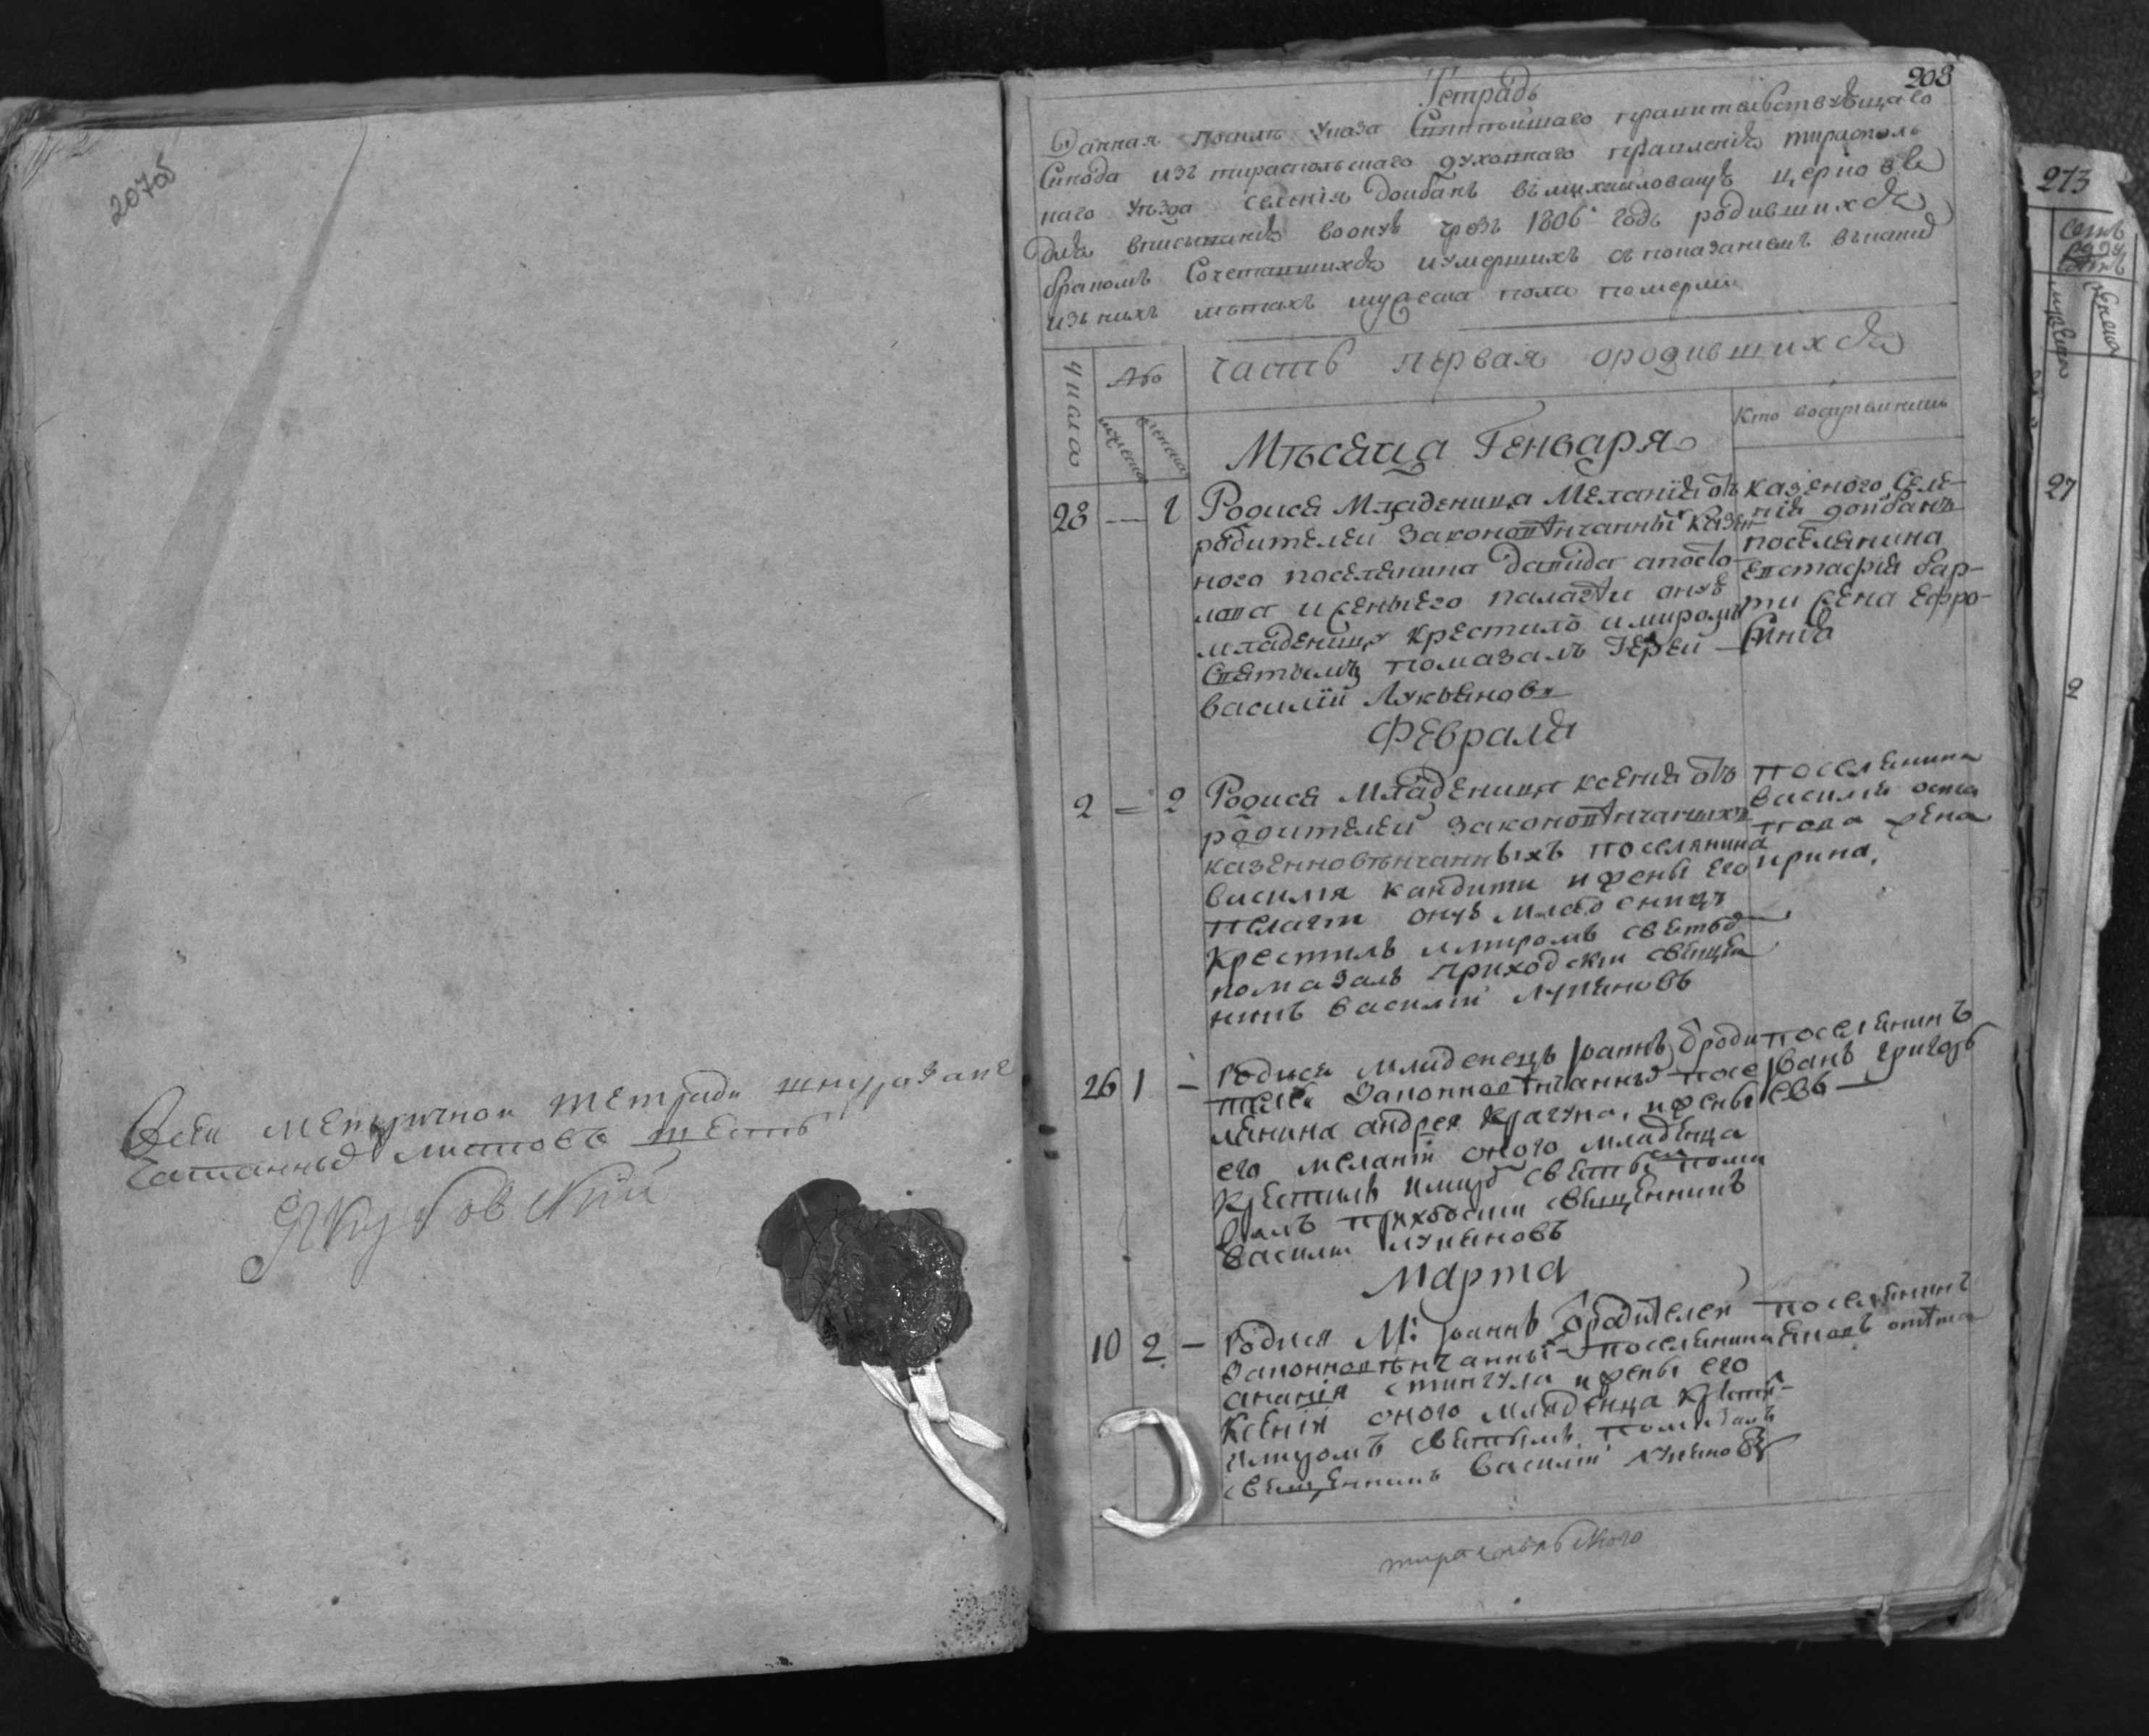 207об
Всей метричной тетради шнурозапе
чатанных листовъ шесть
Якубовский
208
Тетрадь
Данная по силѣ указа Святѣйшаго правительствующаго
Синода изъ тираспольскаго духовнаго правленія тирасполь
наго уѣзда селенія Дойбанъ въ михайловскую церковь
для вписыванія во оную чрезъ 1806 годъ родившихся
бракомъ сочетавшихся и умершихъ съ показаніемъ въ какид
изъ нихъ лѣтахъ мужеска пола померли
числа
Або
часть первая о родившихся
мужеска
женска
Мѣсяца Генваря
Кто воспріемникъ
23 — 1
Родися Младеница Меланія отъ
родителей законовѣнчанныхъ казен
ного поселянина давида апосто
лова и жены его палагѣи оную
младеницу крестилъ и миромъ
святымъ помазалъ Іерей
василій Лукьяновъ
казеного Селе-
нія дойбанъ
поселянина
евстафія бар-
ти жена ефро-
синія
Февраля
2 — 2
Родися Младеница ксенія отъ
родителей законовѣнчаныхъ
казенновѣнчанныхъ поселянина
василія кандити и жены его
пелагѣи оную младеницу
крестилъ и миромъ святы
помазалъ приходскій свяще
никъ василій лукяновъ
поселянина
василія оста
пова жена
ирина,
26 1 —
Родися младенецъ Іоаннъ ѿ роди
телей законновѣнчанных посе
лянина андрея крачуна, и жены
его меланіи оного младенца
крестилъ и миро святы пома
залъ приходскій священникъ
василій лукяновъ
поселянинъ
Іванъ григорь
евъ
Марта
10 2 —
Родися М: Іоаннъ ѿ родителей
законновѣнчанны поселянина
ананія стингула и жены его
Ксеніи оного младенца крести-
и миромъ святымъ помазалъ
священникъ василій лукяновъ
поселянинъ
тираспольского
213
27
2